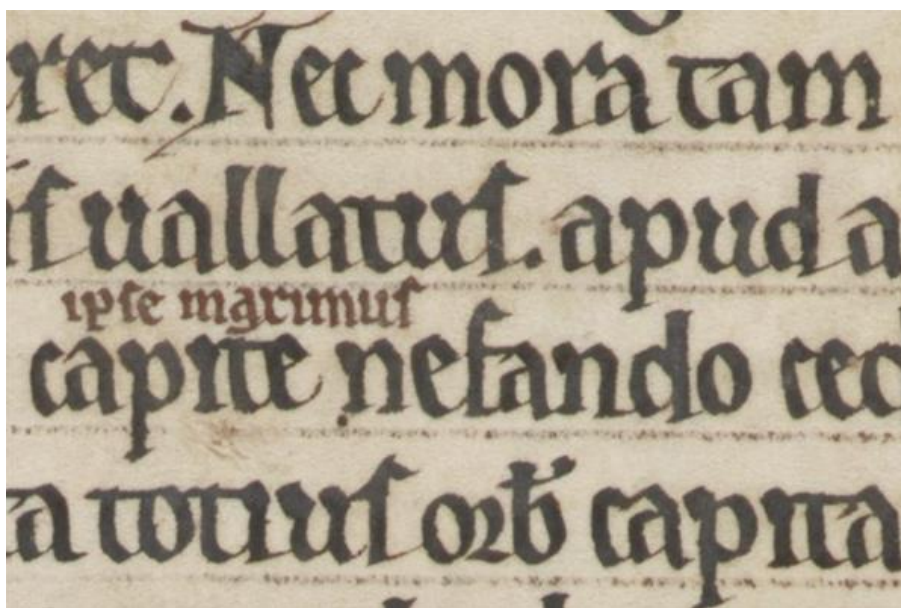 ret. Nec mora tam
uallatus. apud a
ipse maximus
capite nefando cec
ta totius orb capita